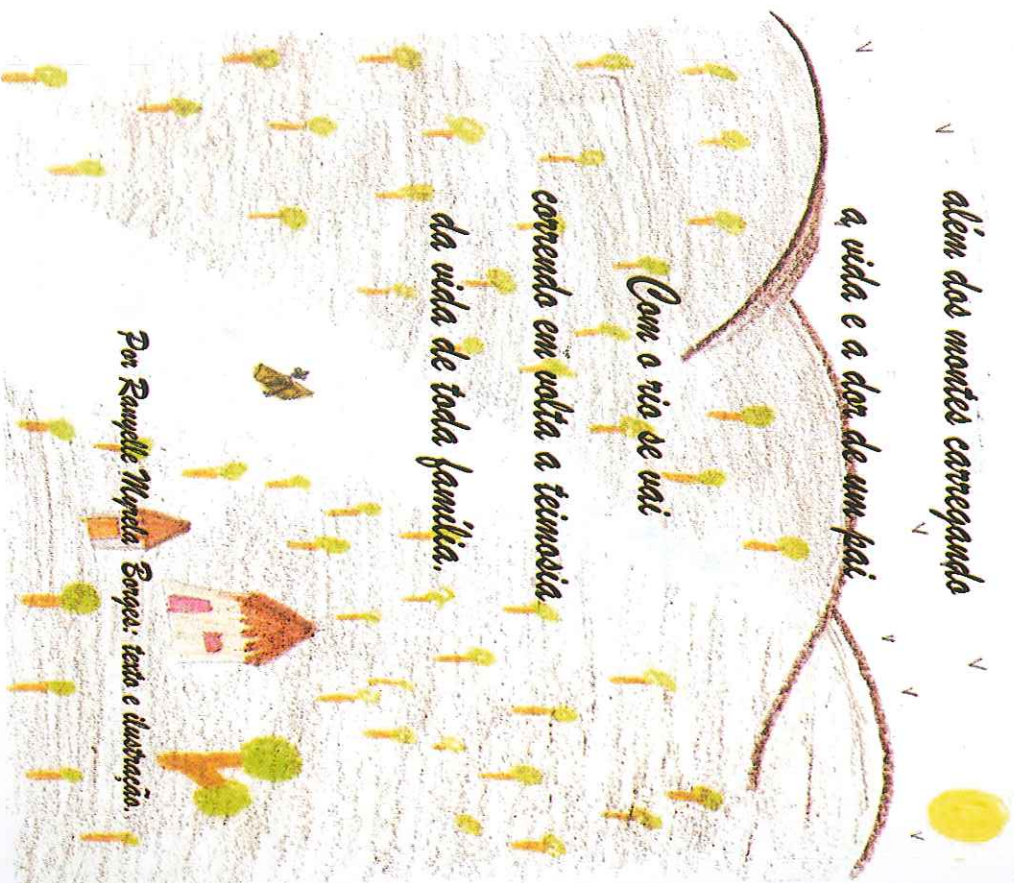 além dos montes carregando
a vida e a dor de um pai
Com o rio se vai
correndo em volta a teimosia
da vida de toda família.
Por Borges: texto e ilustração.